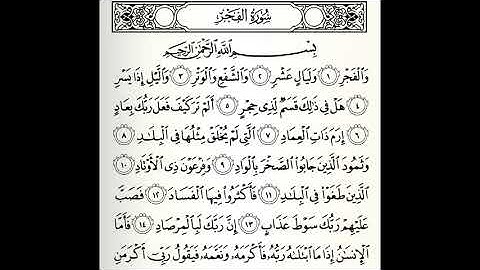 سُورَةُ الفَجْرِ
بِسْمِ ٱللَّهِ ٱلرَّحْمَٰنِ ٱلرَّحِيمِ
وَٱلْفَجْرِ ١ وَلَيَالٍ عَشْرٍ ٢ وَٱلشَّفْعِ وَٱلْوَتْرِ ٣ وَٱلَّيْلِ إِذَا يَسْرِ
٤ هَلْ فِى ذَٰلِكَ قَسَمٌ لِّذِى حِجْرٍ ٥ أَلَمْ تَرَ كَيْفَ فَعَلَ رَبُّكَ بِعَادٍ
٦ إِرَمَ ذَاتِ ٱلْعِمَادِ ٧ ٱلَّتِى لَمْ يُخْلَقْ مِثْلُهَا فِى ٱلْبِلَٰدِ ٨
وَثَمُودَ ٱلَّذِينَ جَابُوا۟ ٱلصَّخْرَ بِٱلْوَادِ ٩ وَفِرْعَوْنَ ذِى ٱلْأَوْتَادِ ١٠
ٱلَّذِينَ طَغَوْا۟ فِى ٱلْبِلَٰدِ ١١ فَأَكْثَرُوا۟ فِيهَا ٱلْفَسَادَ ١٢ فَصَبَّ
عَلَيْهِمْ رَبُّكَ سَوْطَ عَذَابٍ ١٣ إِنَّ رَبَّكَ لَبِٱلْمِرْصَادِ ١٤ فَأَمَّا
ٱلْإِنسَٰنُ إِذَا مَا ٱبْتَلَىٰهُ رَبُّهُۥ فَأَكْرَمَهُۥ وَنَعَّمَهُۥ فَيَقُولُ رَبِّىٓ أَكْرَمَنِ